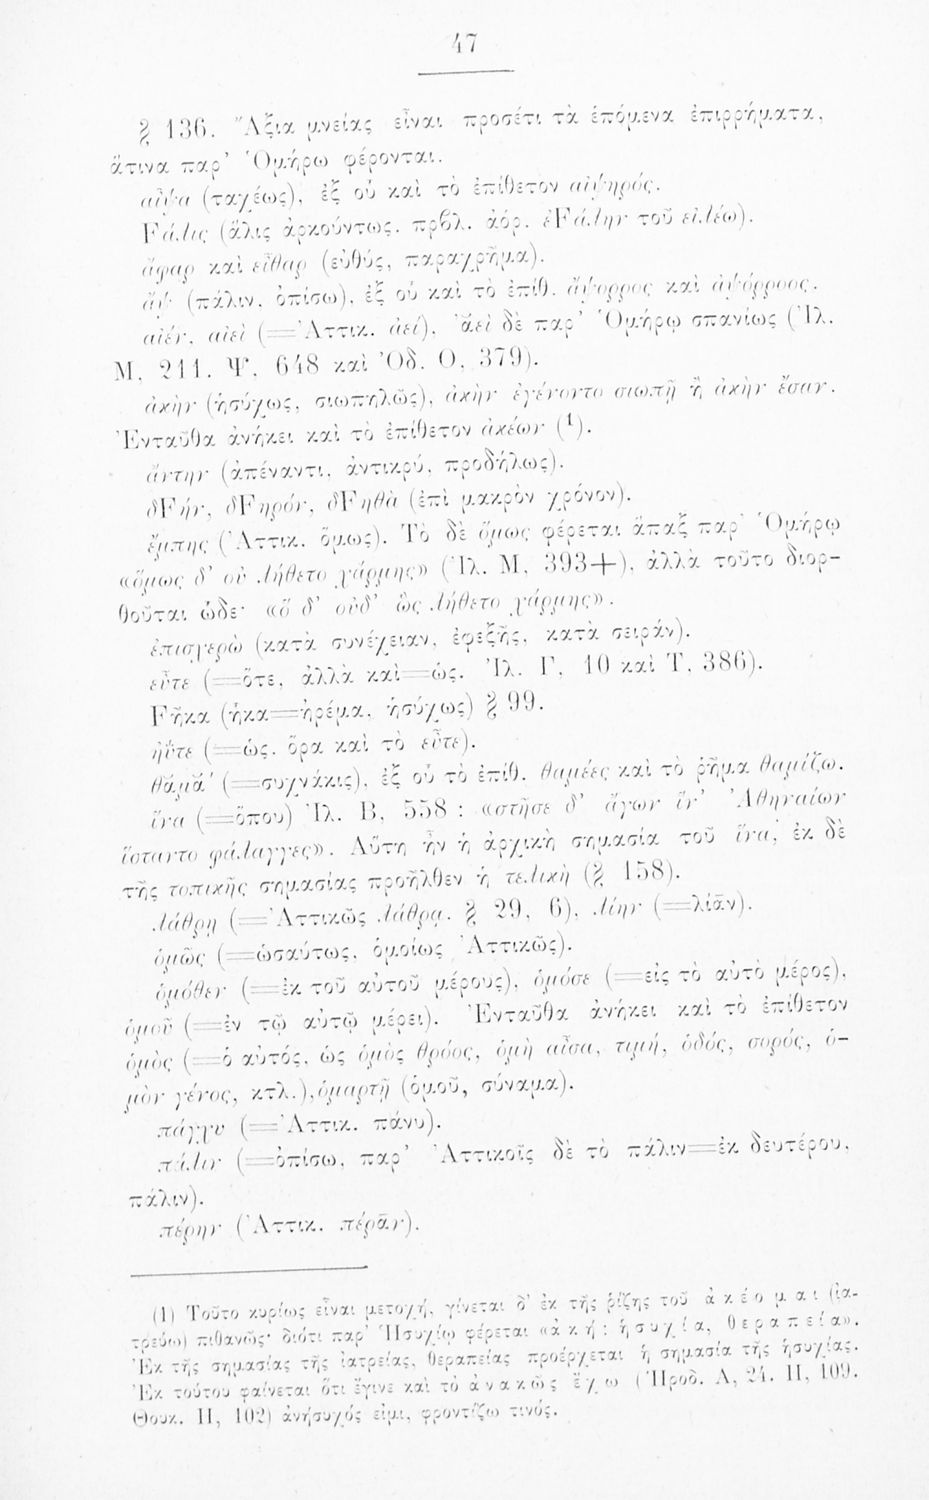 47
§ 136. Ἄξια μνείας εἶναι προσέτι τὰ ἑπόμενα ἐπιρρήματα,
ἅτινα παρ' Ὁμήρῳ φέρονται.
αἶψα (ταχέως), ἐξ οὗ καὶ τὸ ἐπίθετον αἰψηρός.
Ϝάλις (ἅλις ἀρκούντως. πρβλ. ἀόρ. ἐϜάλην τοῦ εἰλέω).
ἄφαρ καὶ εἶθαρ (εὐθύς, παραχρῆμα).
ἂψ (πάλιν, ὀπίσω), ἐξ οὗ καὶ τὸ ἐπίθ. ἄψορρος καὶ ἀψόρροος.
αἰέν, αἰεὶ (=Ἀττικ. ἀεί), ἀεὶ δὲ παρ' Ὁμήρῳ σπανίως (Ἰλ.
Μ, 211. Ψ, 648 καὶ Ὀδ. Ο, 379).
ἀκὴν (ἡσύχως, σιωπηλῶς), ἀκὴν ἐγένοντο σιωπῇ ἢ ἀκὴν ἔσαν.
Ἐνταῦθα ἀνήκει καὶ τὸ ἐπίθετον ἀκέων (1).
ἄντην (ἀπέναντι, ἀντικρύ, προδήλως).
δϜήν, δϜηρόν, δϜηθὰ (ἐπὶ μακρὸν χρόνον).
ἔμπης (Ἀττικ. ὅμως). Τὸ δὲ ὅμως φέρεται ἅπαξ παρ' Ὁμήρῳ
«ὅμως δ' οὐ λήθετο χάρμης» (Ἰλ. Μ, 393+), ἀλλὰ τοῦτο διορ-
θοῦται ὧδε· «ὃ δ' οὐδ' ὣς λήθετο χάρμης».
ἐπισχερὼ (κατὰ συνέχειαν, ἐφεξῆς, κατὰ σειράν).
εὖτε (=ὅτε, ἀλλὰ καὶ=ὡς. Ἰλ. Γ, 10 καὶ Τ, 386).
Ϝῆκα (ἦκα=ἠρέμα, ἡσύχως) § 99.
ἠΰτε (=ὡς. ὅρα καὶ τὸ εὖτε).
θᾰμᾰ' (=συχνάκις), ἐξ οὗ τὸ ἐπίθ. θαμέες καὶ τὸ ῥῆμα θαμίζω.
ἵνα (=ὅπου) Ἰλ. Β, 558 : «στῆσε δ' ἄγων ἵν' Ἀθηναίων
ἵσταντο φάλαγγες». Αὕτη ἦν ἡ ἀρχικὴ σημασία τοῦ ἵνα, ἐκ δὲ
τῆς τοπικῆς σημασίας προῆλθεν ἡ τελικὴ (§ 158).
λάθρῃ (=Ἀττικῶς λάθρᾳ. § 29, 6), λίην (=λίᾱν).
ὁμῶς (=ὡσαύτως, ὁμοίως Ἀττικῶς).
ὁμόθεν (=ἐκ τοῦ αὐτοῦ μέρους), ὁμόσε (=εἰς τὸ αὐτὸ μέρος),
ὁμοῦ (=ἐν τῷ αὐτῷ μέρει). Ἐνταῦθα ἀνήκει καὶ τὸ ἐπίθετον
ὁμὸς (=ὁ αὐτός, ὡς ὁμὸς θρόος, ὁμὴ αἶσα, τιμή, ὁδός, σορός, ὁ-
μὸν γένος, κτλ.), ὁμαρτῇ (ὁμοῦ, σύναμα).
πάγχυ (=Ἀττικ. πάνυ).
πάλιν (=ὀπίσω, παρ' Ἀττικοῖς δὲ τὸ πάλιν=ἐκ δευτέρου,
πάλιν).
πέρην (Ἀττικ. πέρᾱν).
(1) Τοῦτο κυρίως εἶναι μετοχή, γίνεται δ' ἐκ τῆς ῥίζης τοῦ ἀκέομαι (ἰα-
τρεύω) πιθανῶς· διότι παρ' Ἡσυχίῳ φέρεται «ἀκή: ἡσυχία, θεραπεία».
Ἐκ τῆς σημασίας τῆς ἰατρείας, θεραπείας προέρχεται ἡ σημασία τῆς ἡσυχίας.
Ἐκ τούτου φαίνεται ὅτι ἔγινε καὶ τὸ ἀνακῶς ἔχω (Ἡροδ. Α, 24. Η, 109.
Θουκ. Η, 102) ἀνήσυχός εἰμι, φροντίζω τινός.